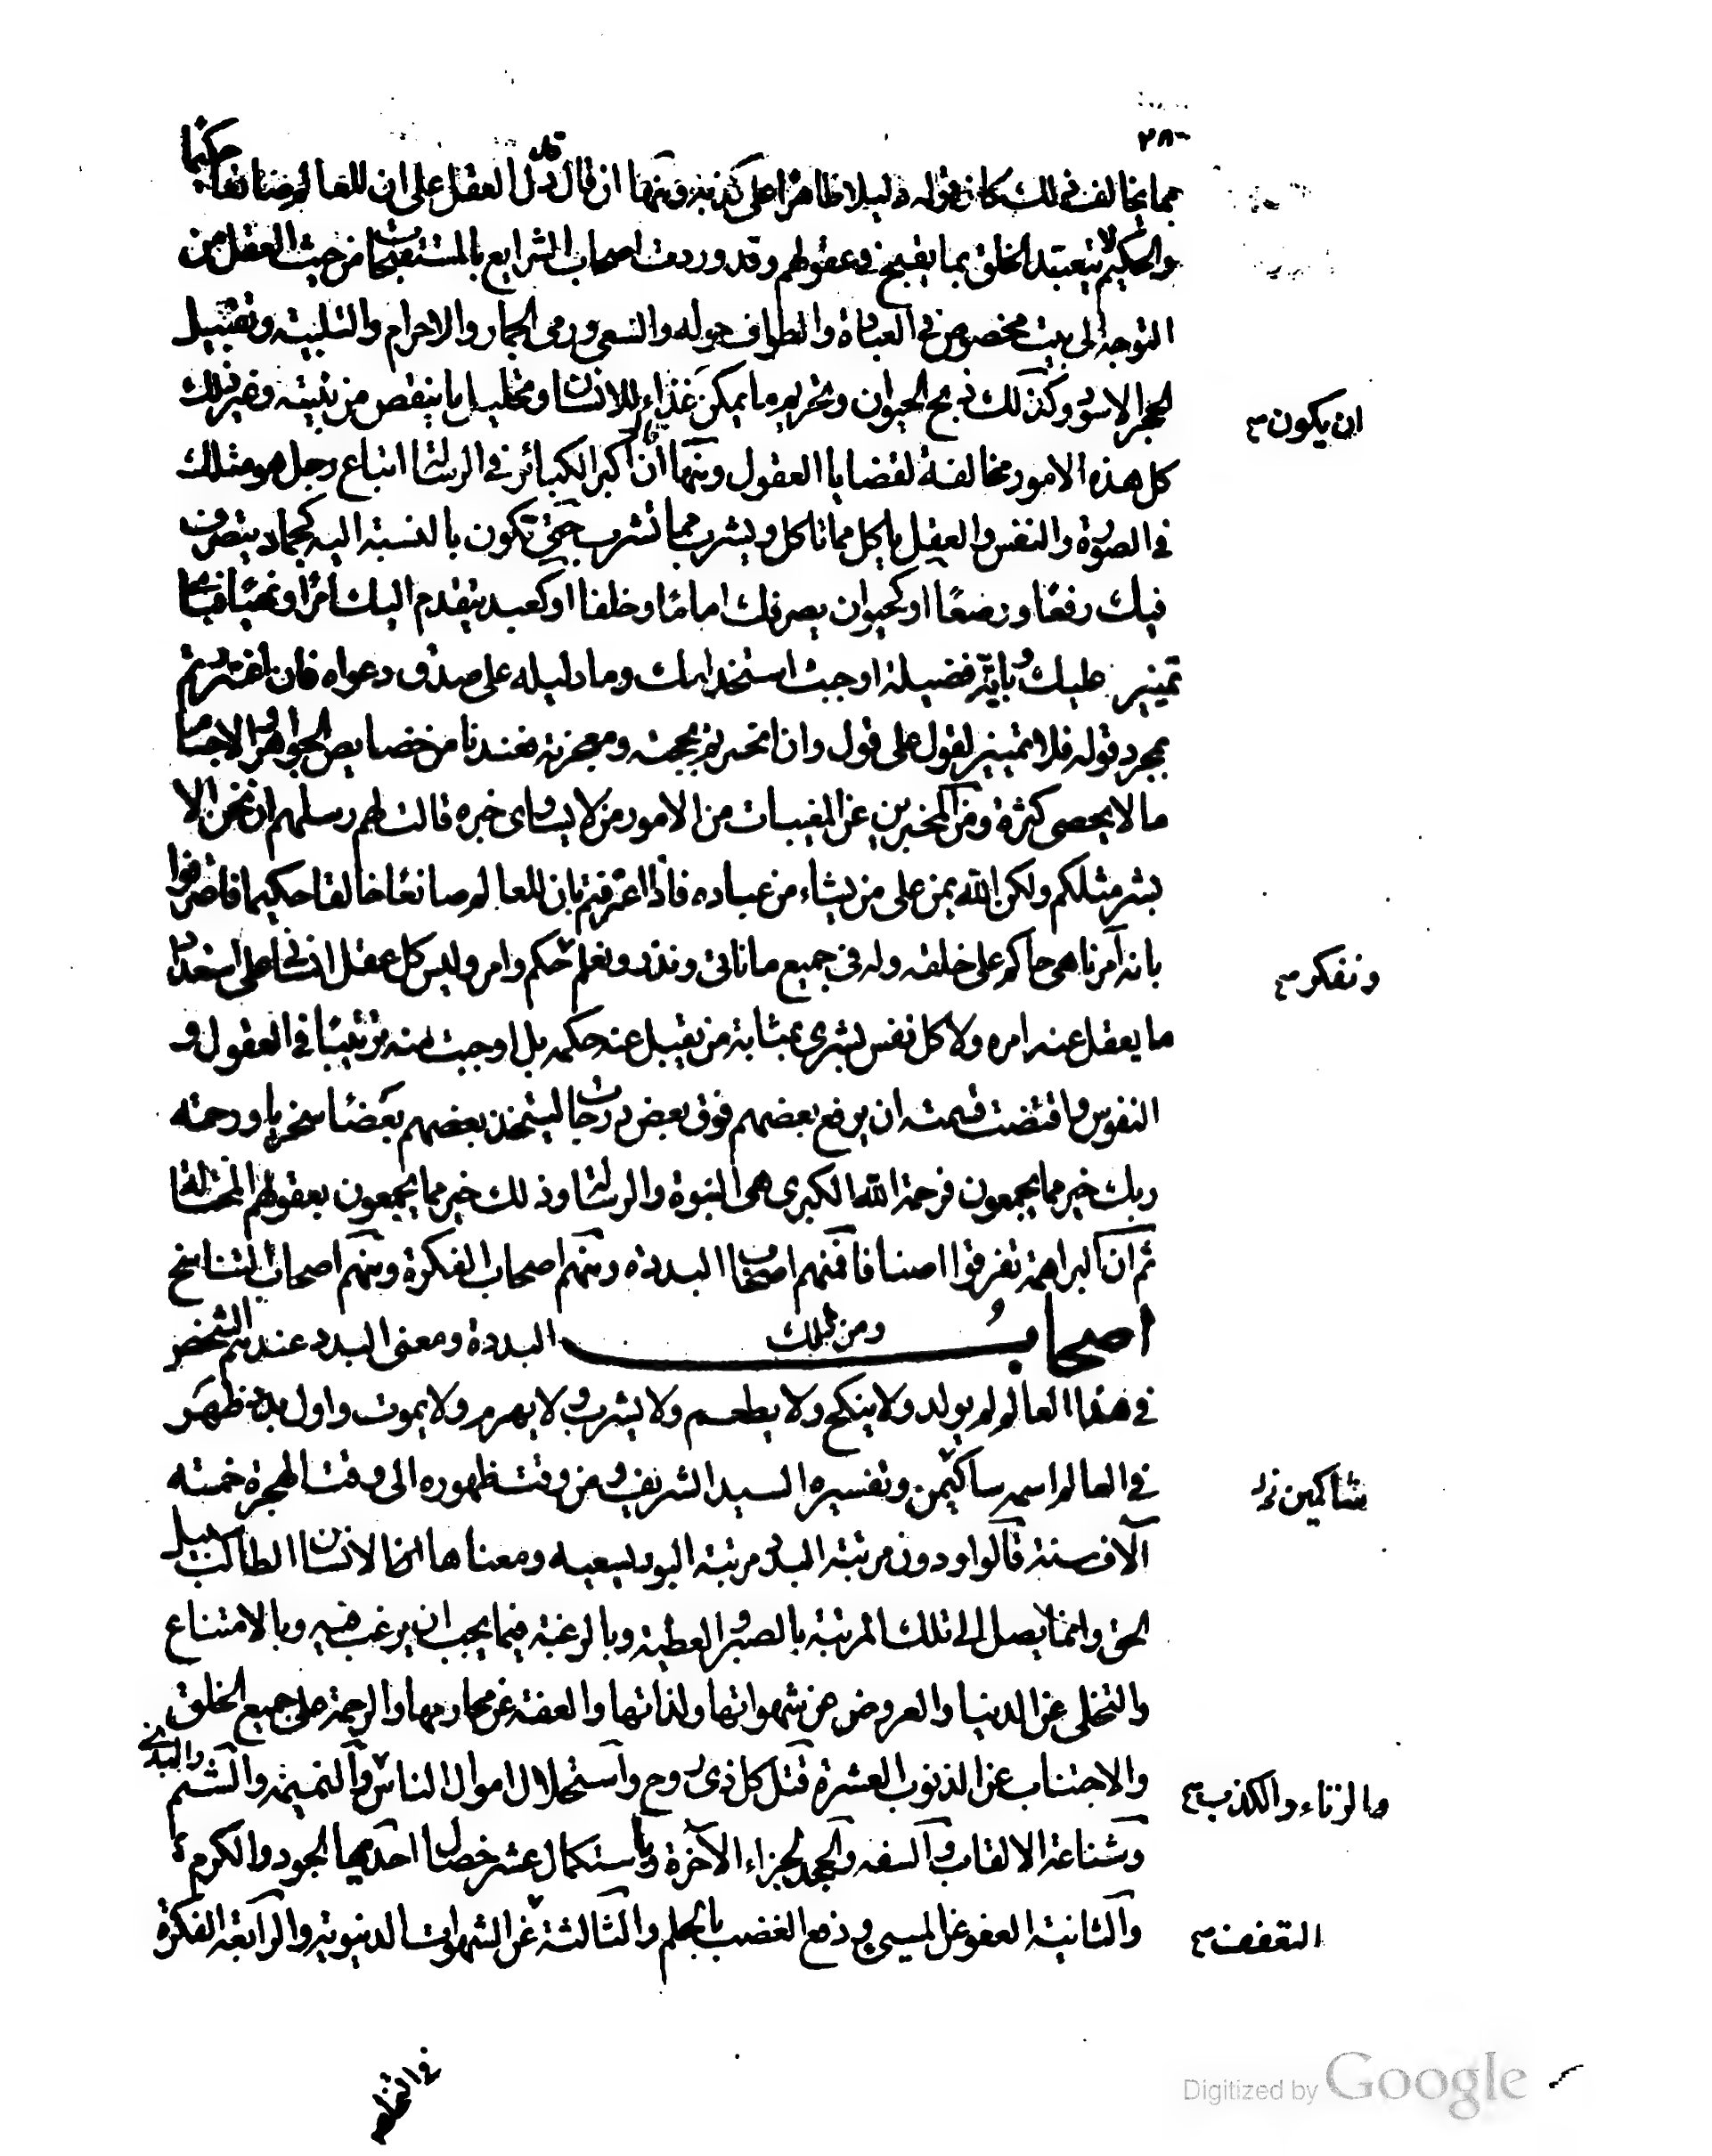 ٢٨٠
مما يخالف ذلك كان قوله دليلا ظاهرا على كذبه ومنها ان قال قد دل العقل على ان للعالم صانعا حكيما
والحكيم لا يتعبد الخلق بما يقبح في عقولهم وقد وردت اصحاب الشرايع بالمستقبحات من حيث العقل من
التوجه الى بيت مخصوص في العبادة والطواف حوله والسعى ورمى الجمار والاحرام والتلبيه وتقبيل
الحجر الاسود وكذلك ذبح الحيوان وتحريم ما يمكن غذاء للانسان وتحليل ما ينقص من بنيته وغير ذلك
ان يكون
كل هذه الامور مخالفة لقضايا العقول ومنها ان اكبر الكبائر في الرسالة اتباع رجل هو مثلك
في الصورة والنفس والعقل ياكل مما تاكل ويشرب مما تشرب حتى تكون بالنسبة اليه كجماد يتصرف
فيك رفعا ووضعا او كحيوان يصرفك اماما وخلفا او كعبد يتقدم اليك امرا ونهيا فباى
تمييز عليك وباية فضيلة اوجبت استخدامك وما دليله على صدق دعواه فان اغتررتم
بمجرد قوله فلا تمييز لقول على قول وان انحسرتم بحجته ومعجزته فعندنا من خصايص الجواهر والاجسام
ما لا يحصى كثرة ومن المخبرين عن المغيبات من الامور من لا يساوى خبره قالت لهم رسلهم ان نحن الا
بشر مثلكم ولكن الله يمن على من يشاء من عباده فاذا اعترفتم بان للعالم صانعا خالقا حكيما فاعترفوا
بانه آمر ناهى حاكم على خلقه وله في جميع ما ناتى ونذر ونعلم حكم وامر وليس كل عقل انسانى على استعداد
ونفكر
ما يعقل عنه امره ولا كل نفس بشرى بمثابة من يقبل عنه حكمه بل اوجبت منته ترتيبا في العقول و
النفوس واقتضت قسمته ان يرفع بعضهم فوق بعض درجات ليتخذ بعضهم بعضا سخريا ورحمته
ربك خير مما يجمعون فرحمة الله الكبرى هى النبوة والرسالة وذلك خير مما يجمعون بعقولهم المختالة
ثم ان البراهمة تفرقوا اصنافا فمنهم اصحاب البددة ومنهم اصحاب الفكرة ومنهم اصحاب التناسخ
ومن ذلك اصحاب البددة ومعنى البدد عندهم الشخص
في هذا العالم لم يولد ولا ينكح ولا يطعم ولا يشرب ولا يهرم ولا يموت واول بد ظهر
في العالم اسمه ساكيمن وتفسيره السيد الشريف ومن وقت ظهوره الى وقت الهجرة خمسة
شاكمين
آلاف سنة قالوا ودون مرتبة البد مرتبة البوديسعيه ومعناها الانسان الطالب سبيل
الحق وانما يصل الى تلك المرتبة بالصبر والعطية وبالرغبة فيما يجب ان يرغب فيه وبالامتناع
والتخلى عن الدنيا والعزوف عن شهواتها ولذاتها والعفة عن محارمها والرحمة على جميع الخلق
والاجتناب عن الذنوب العشرة قتل كل ذى روح واستحلال اموال الناس والنميمة والشتم والبذى
والزناء والكذب
وشناعة الالقاب والسفه والجحد لجزاء الآخرة وباستكمال عشر خصال احديها الجود والكرم
والثانية العفو عن المسيئ ودفع الغضب بالحلم والثالثة عن الشهوات الدنيوية والرابعة الفكرة
التعفف
Digitized by Google